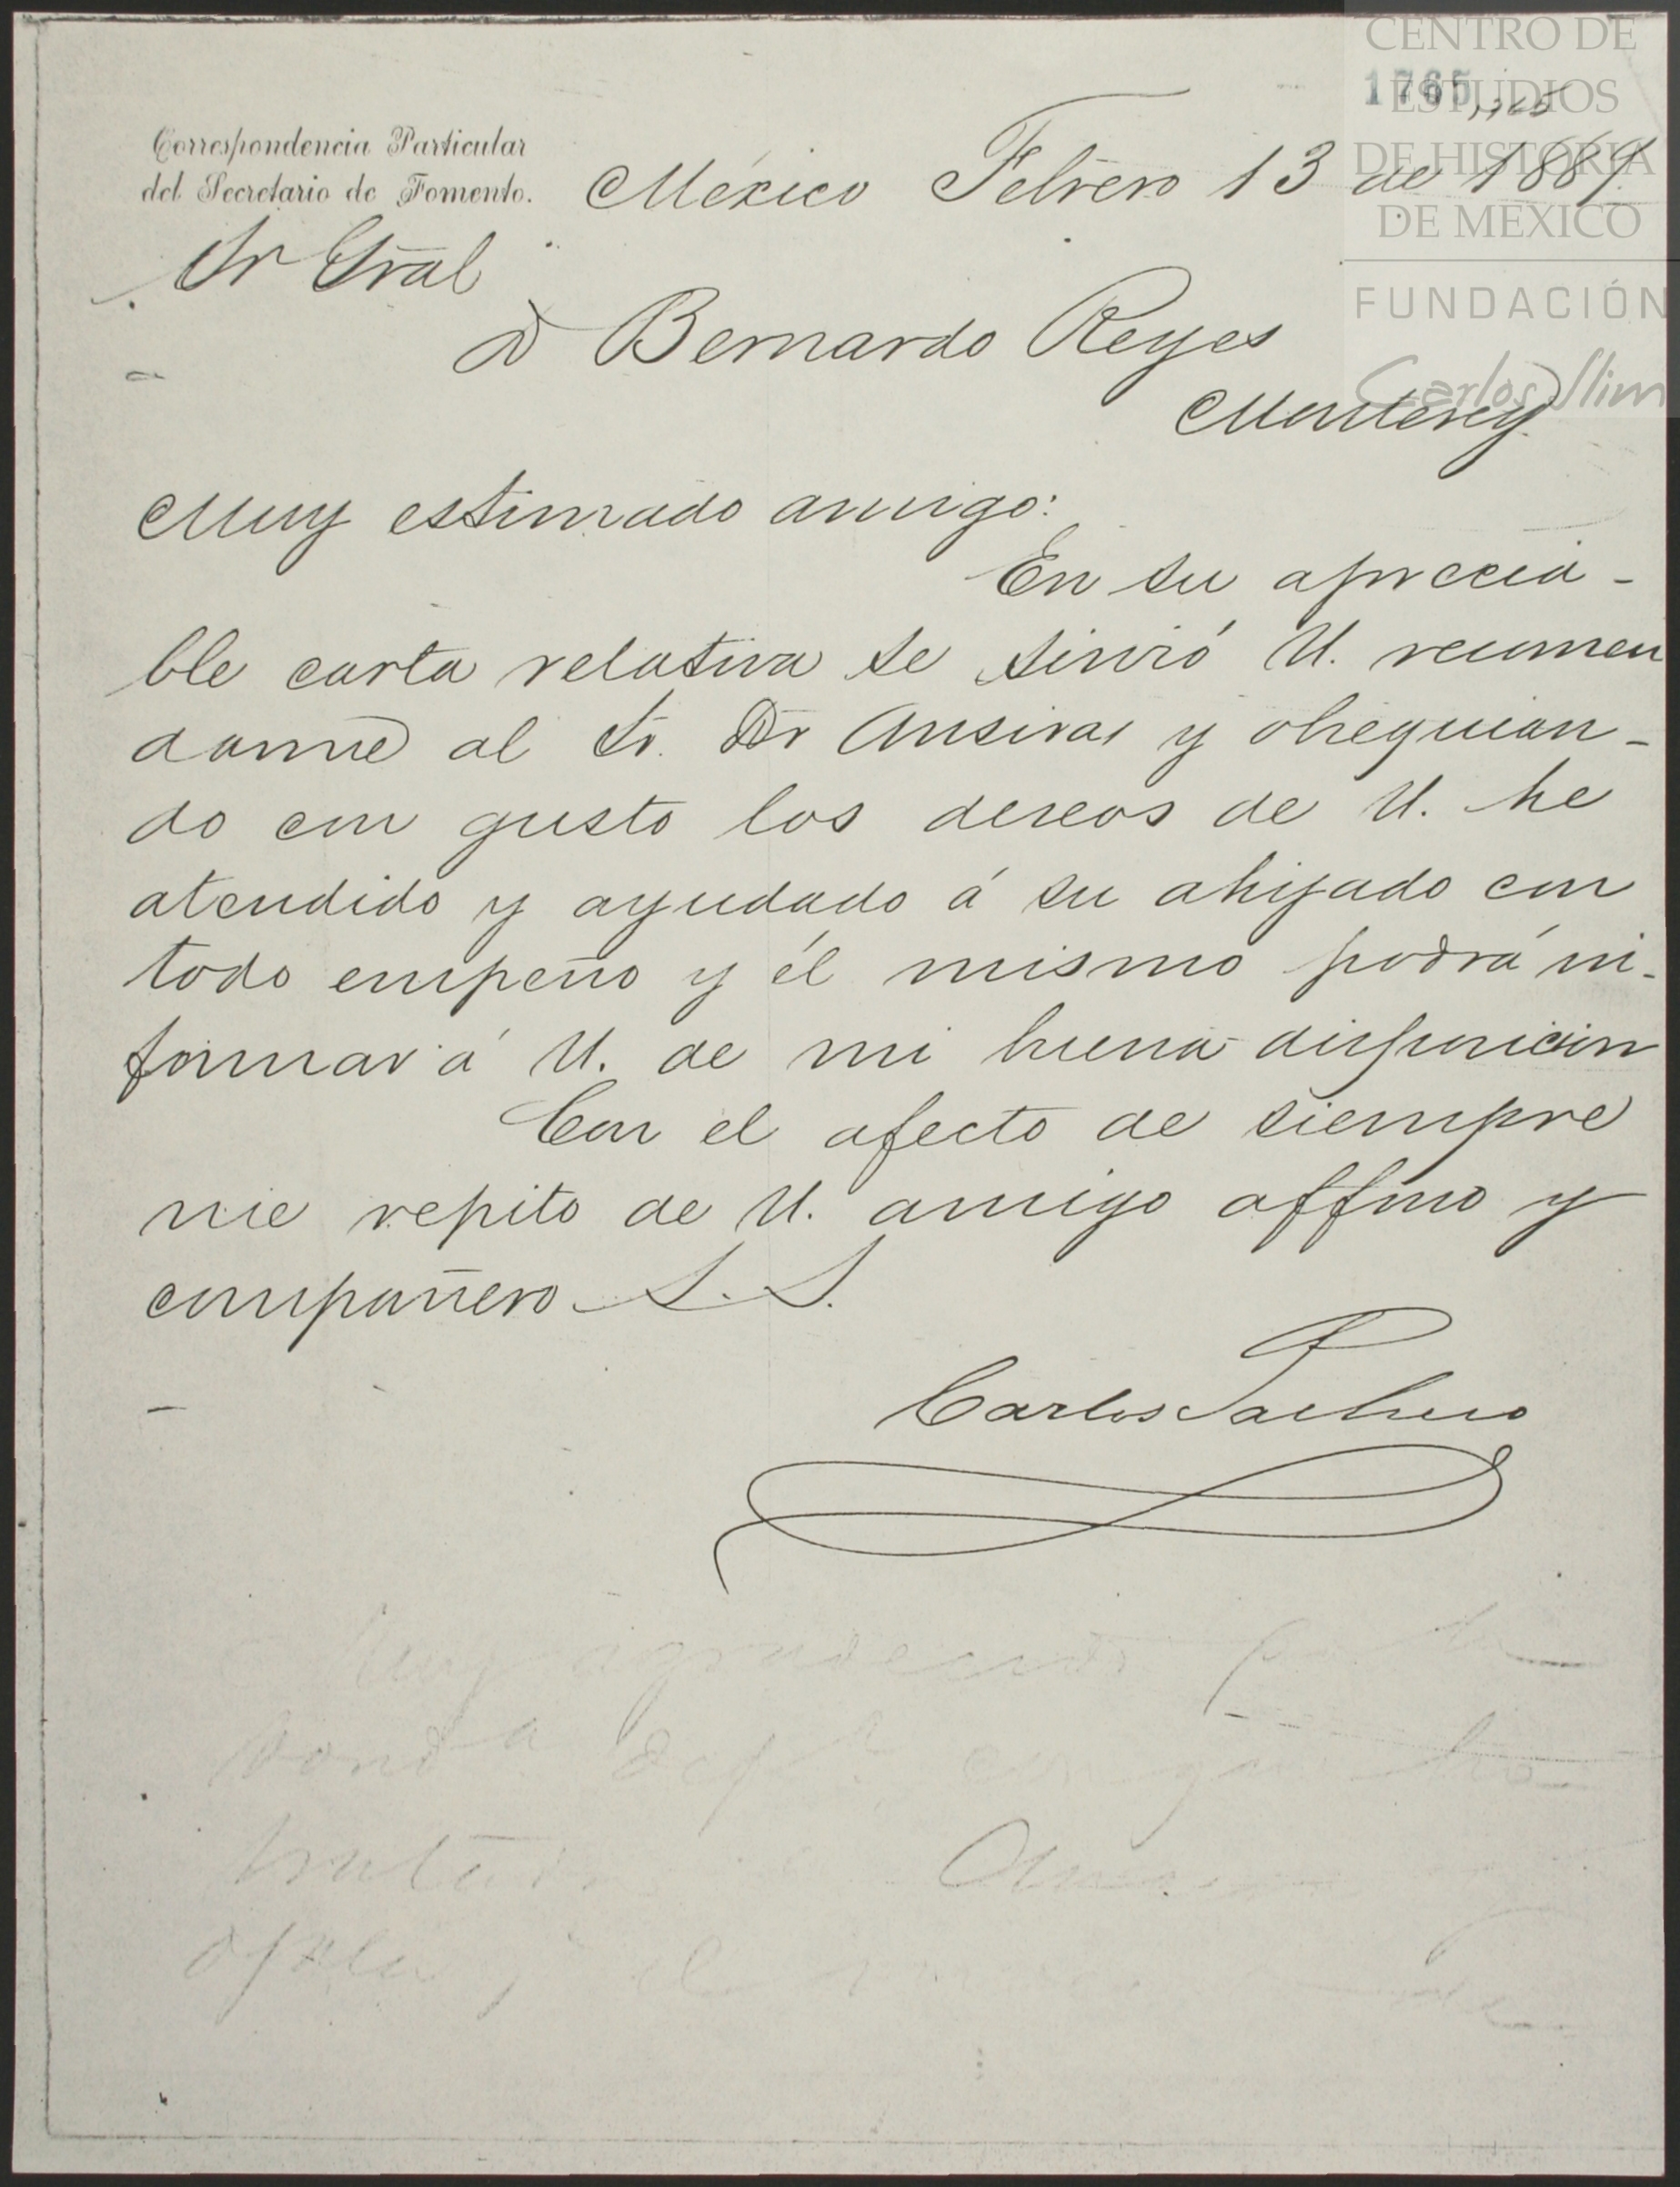 CENTRO DE
ESTUDIOS
DE HISTORIA
DE MEXICO
FUNDACIÓN
Carlos Slim
1765
Correspondencia Particular
del Secretario de Fomento.
México Febrero 13 de 1889.
Sr Gral
D Bernardo Reyes
Monterey
Muy estimado amigo:
En su aprecia-
ble carta relativa se sirvió U. recomen
darme al Sr. Dr Ansiras y obsequian-
do con gusto los deseos de U. he
atendido y ayudado á su ahijado con
todo empeño y él mismo podrá in-
formar á U. de mi buena disposición
Con el afecto de siempre
me repito de U. amigo affmo y
compañero S. S.
Carlos Pacheco
Muy agradecido